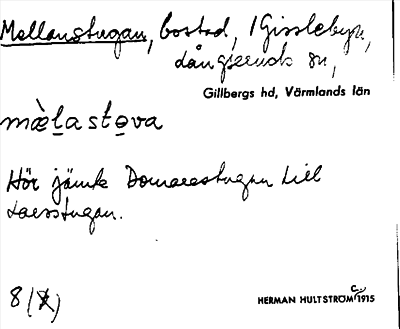 Mellanstugan, bostad, i Gisslebyn,
Långseruds sn,
Gillbergs hd, Värmlands län
mæ̀lastova
Hör jämte Domarestugan till
Larsstugan.
8 (X)
HERMAN HULTSTRÖM C:a 1915